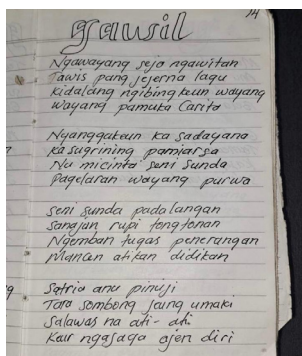 14
gausil
Ngawayang seja ngawitan
Tawis pang jejerna lagu
Kidalang ngibingkeun wayang
wayang pamuka Carita
Nyanggakeun ka sadayana
ka sugrining pamiarsa
Nu micinta seni Sunda
Pagelaran wayang purwa
seni sunda padalangan
sanajan rupi tongtonan
Ngemban tugas penerangan
Mancan atikan didikan
Satria anu pinuji
Tara sombong jeung umaki
Salawas na ati-ati
Kaur ngajaga ajen diri